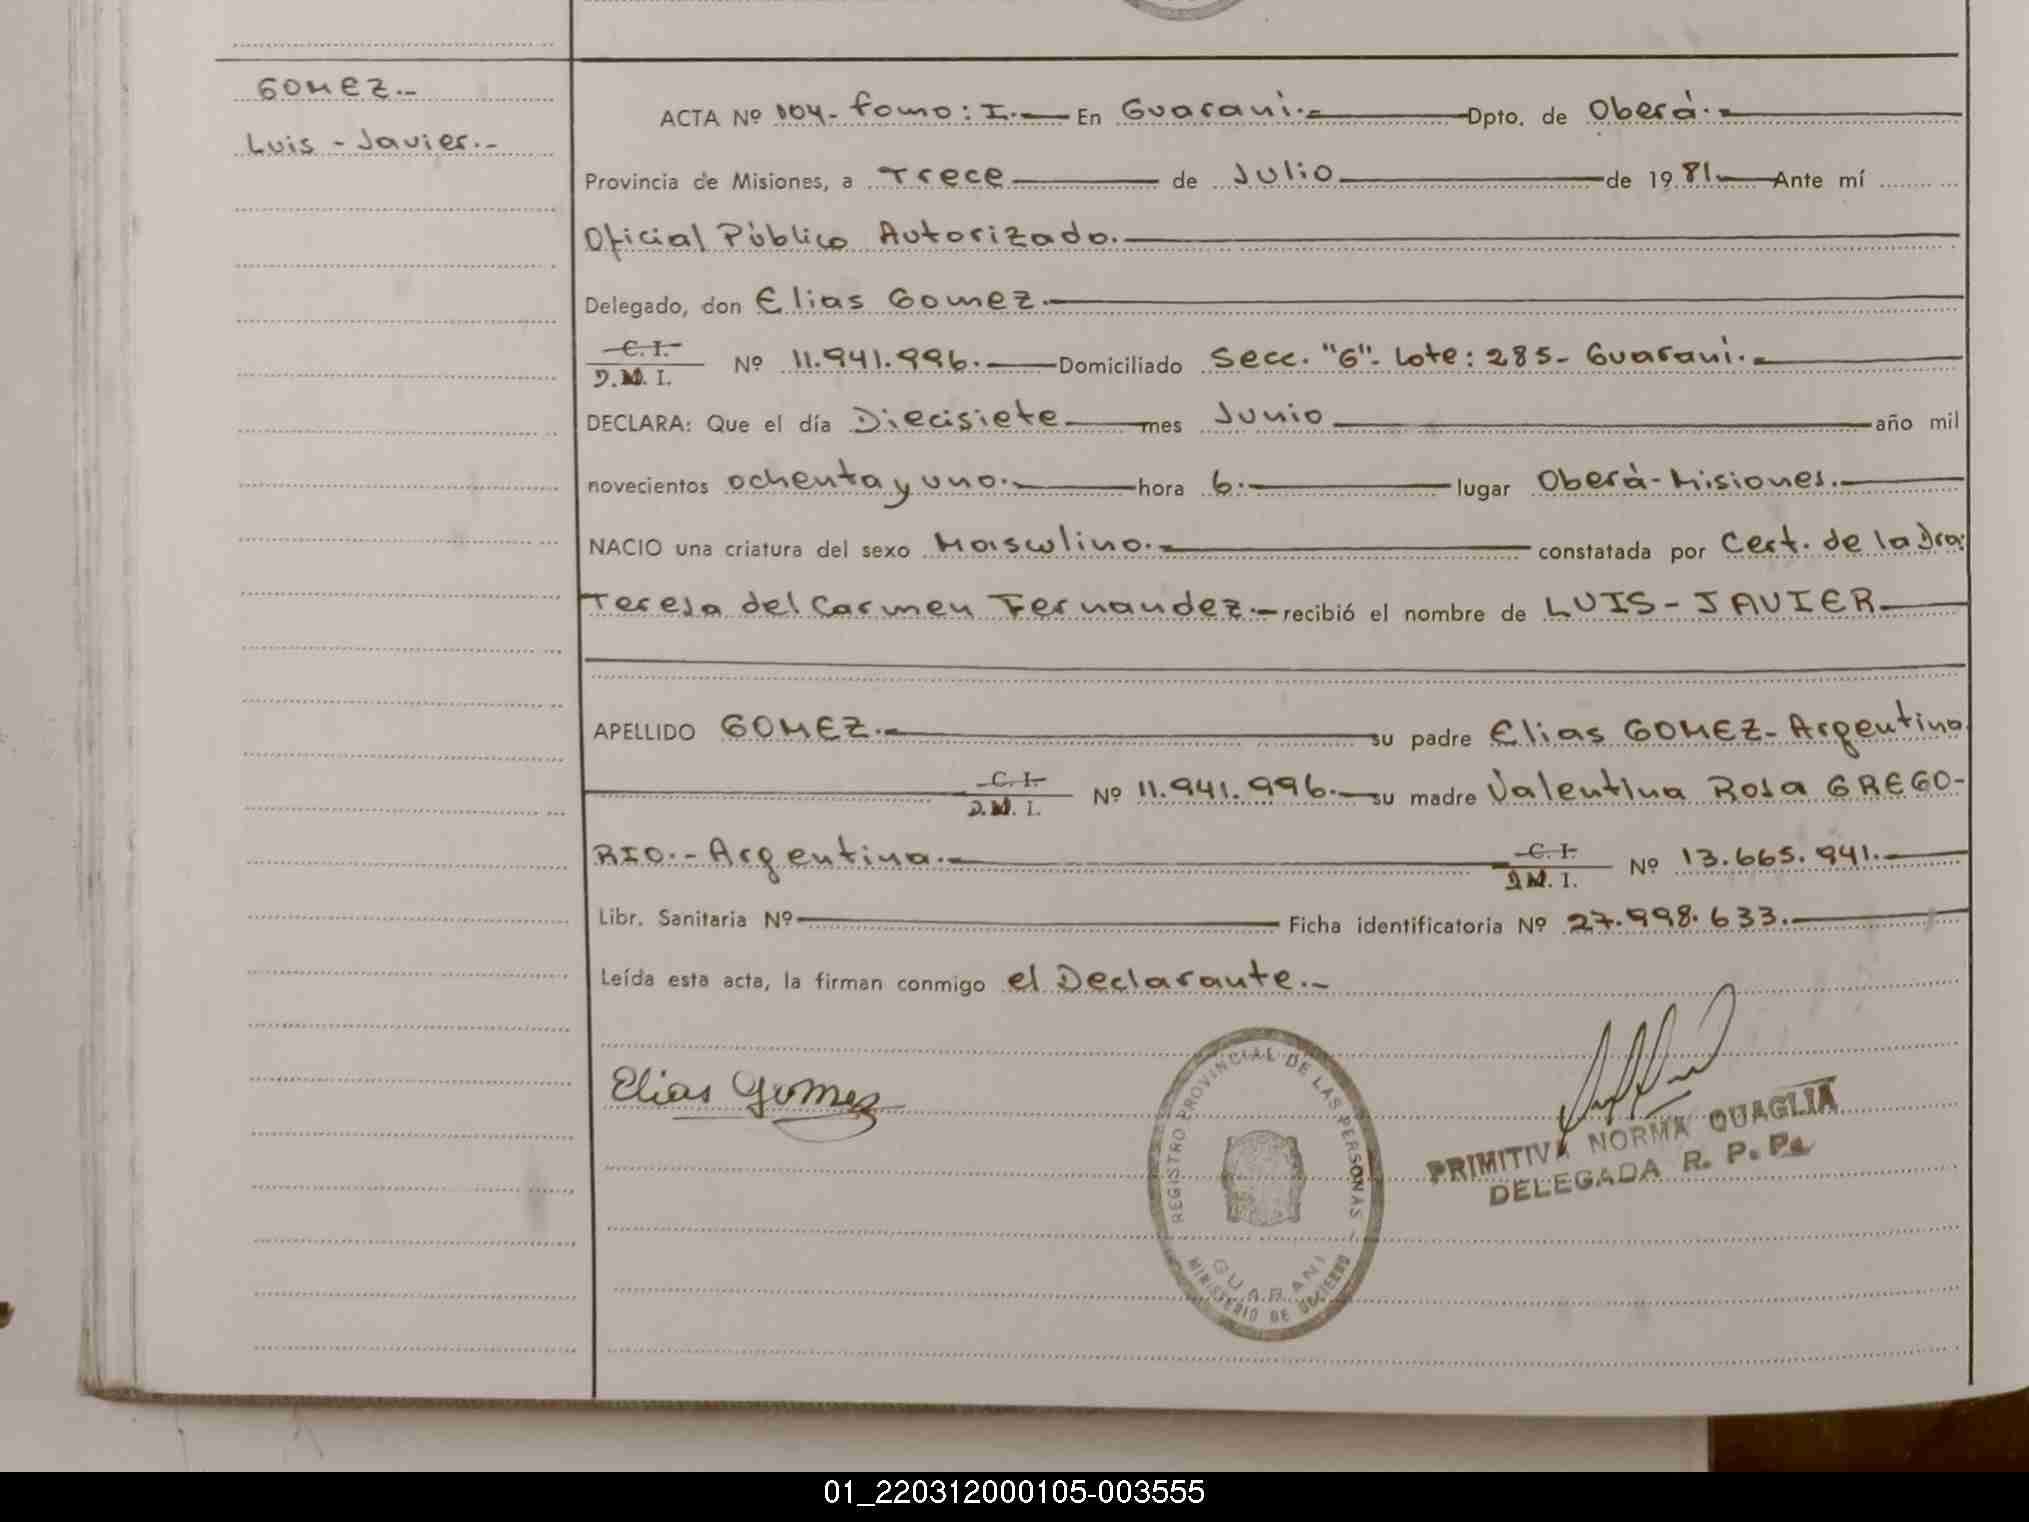 GOMEZ.-
Luis - Javier.-
ACTA Nº 104- Tomo: I.- En Guaraní.- Dpto. de Oberá.-
Provincia de Misiones, a Trece de Julio de 1981.- Ante mí
Oficial Público Autorizado.-
Delegado, don Elias Gomez.-
C. I.
D.N. I. Nº 11.941.996.- Domiciliado Secc. "G"- Lote: 285- Guaraní.-
DECLARA: Que el día Diecisiete mes Junio año mil
novecientos ochenta y uno.- hora 6.- lugar Oberá-Misiones.-
NACIO una criatura del sexo Masculino.- constatada por Cert. de la Dra:
Teresa del Carmen Fernandez.- recibió el nombre de LUIS-JAVIER
APELLIDO GOMEZ.- su padre Elias GOMEZ- Argentino
C. I.
D.N. I. Nº 11.941.996.- su madre Valentina Rosa GREGO-
RIO.- Argentina.- C. I.
D.N. I. Nº 13.665.941.-
Libr. Sanitaria Nº Ficha identificatoria Nº 27.998.633.-
Leída esta acta, la firman conmigo el Declarante.-
Elias Gomez
REGISTRO PROVINCIAL DE LAS PERSONAS
GUARANI
MINISTERIO DE GOBIERNO
PRIMITIVA NORMA QUAGLIA
DELEGADA R. P. P.
01_220312000105-003555